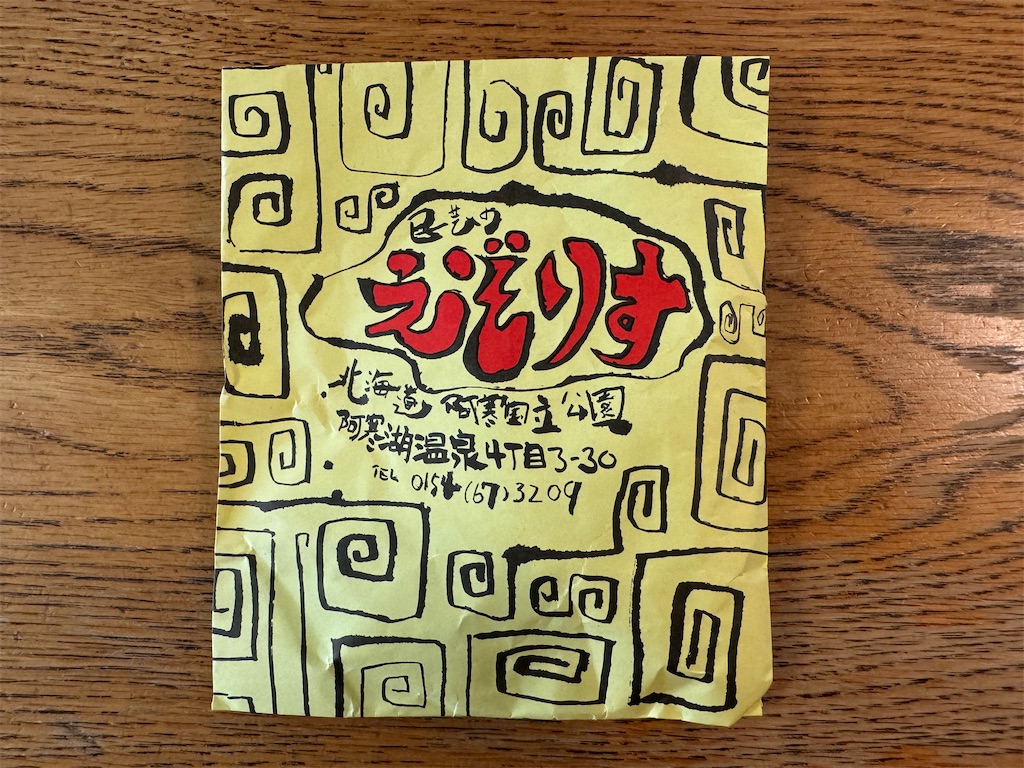 民芸の
えぞりす
北海道 阿寒国立公園
阿寒湖温泉4丁目3-30
TEL 0154(67)3209